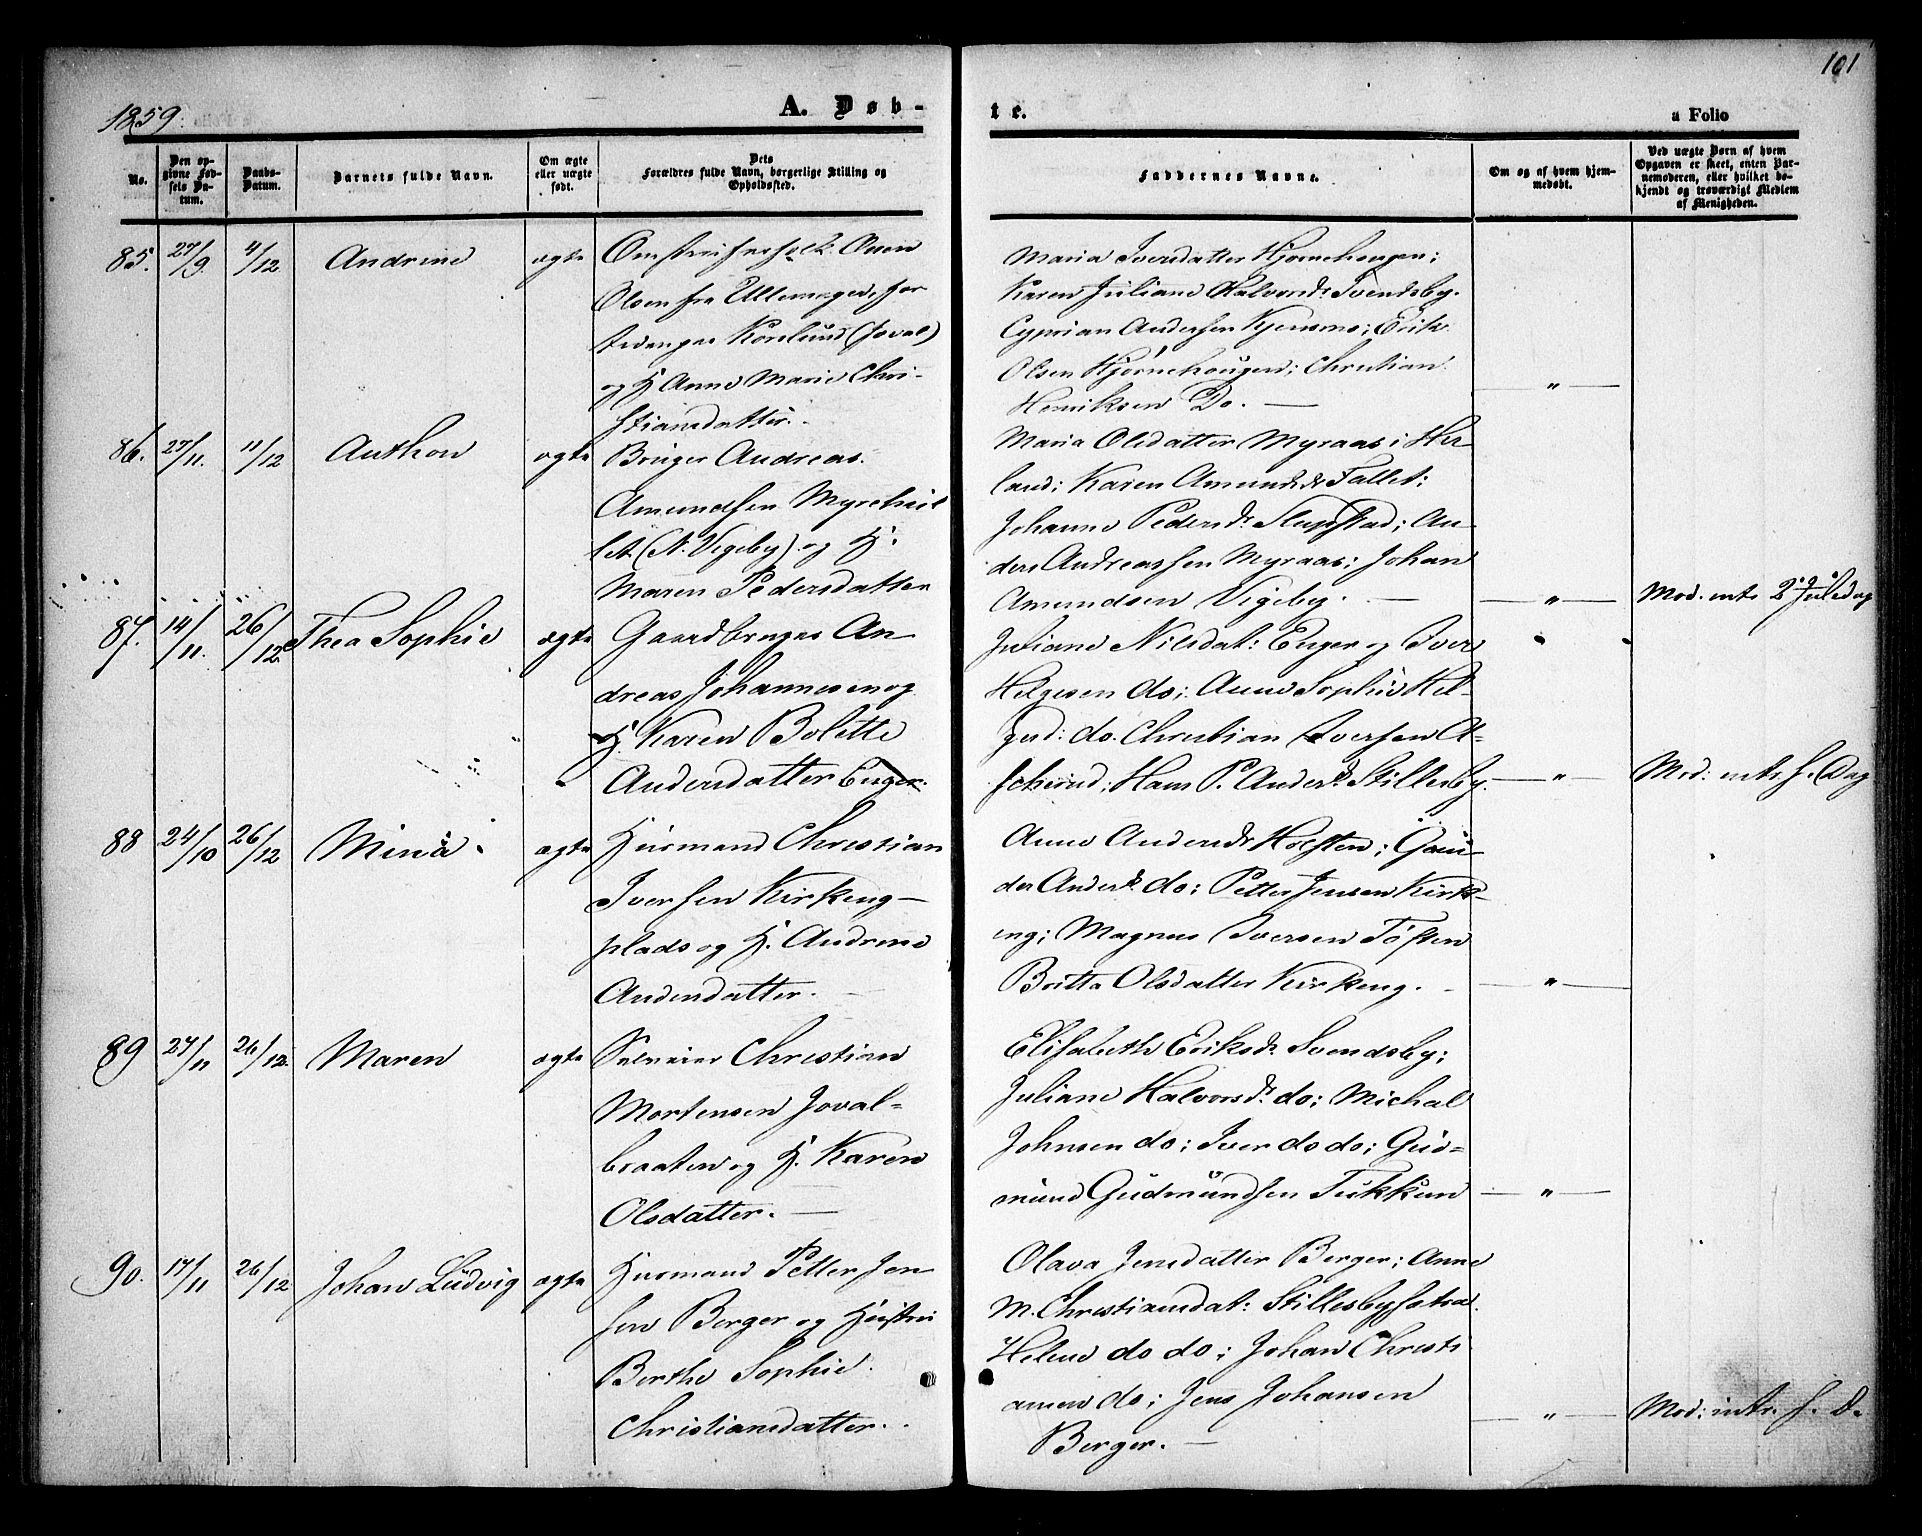 1859
A. Døb-
te.
a Folio
101
No.
Den op-
givne Fød-
sels Da-
tum.
Daabs-
Datum.
Barnets fulde Navn.
Om ægte
eller uægte
født.
Dets
Forældres fulde Navn, borgerlige Stilling og
Opholdssted.
Faddernes Navne.
Om og af hvem hjem-
medøbt.
Ved uægte Børn af hvem
Opgaven er skeet, enten Bar-
nemoderen, eller hvilket be-
kjendt og troværdigt Medlem
af Menigheden.
85. 27/9. 4/12. Andrine ægte
Olsen fra
Korslund (Joval)
og H. Anne Marie Chri-
stiansdatter.
Maria Iversdatter Hjørnehougen;
Karen Juliane Halvorsdr Svendsby.
Cyprian Andersen Kjensmo; Erik
Olsen Hjørnehougen; Christian
Henriksen Do. — „ —
86. 27/11. 11/12 Anthon ægte
Bruger Andreas
Amundsen Myrehvil
let (N. Vigeby) og H.
Maren Pedersdatter
Maria Olsdatter Myraas i Her-
land; Karen Amundsdr Fallet;
Johanne Pedersdr Slupstad; An-
ders Andreassen Myraas; Johan
Amundsen Vigeby. — „ — Mod. intr. 2 Juledag
87. 14/11. 26/12. Thea Sophie ægte
Gaardbruger An
dreas Johannesen og
H. Karen Bolette
Andersdatter Enger.
Juliane Nilsdat: Enger og Iver
Helgesen do; Anne Sophie Hel-
gesd: do. Christian Iversen A-
scherud; Hans P. Anders. Stillesby. — „ — Mod: intr. s. Dag
88 24/10 26/12 Mina. ægte
Husmand Christian
Iversen Kirkeng-
plads og H. Andrine
Andersdatter. —
Anne Andersdr Holsten; Gun
der Anders. do; Petter Jensen Kirk-
eng; Magnus Iversen Toften
Britta Olsdatter Kirkeng. — „ —
89 27/11 26/12. Maren ægte
Selveier Christian
Mortensen Joval-
braaten og H. Karen
Olsdatter. —
Elisabeth Eriksdr Svendsby;
Juliane Halvorsdr. do; Michal
Johnsen do; Iver do do; Gud-
mund Gudmundsen Tukkun — „ —
90. 17/11 26/12 Johan Ludvig ægte
Husmand Petter Jen
sen Berger og Hustru
Berthe Sophie
Christiansdatter.
Olava Jensdatter Berger; Anne
M. Christiansdat: Stillesby
Helene do do; Johan Christi
ansen do; Jens Johansen
Berger. — „ — Mod: intr. s. D.